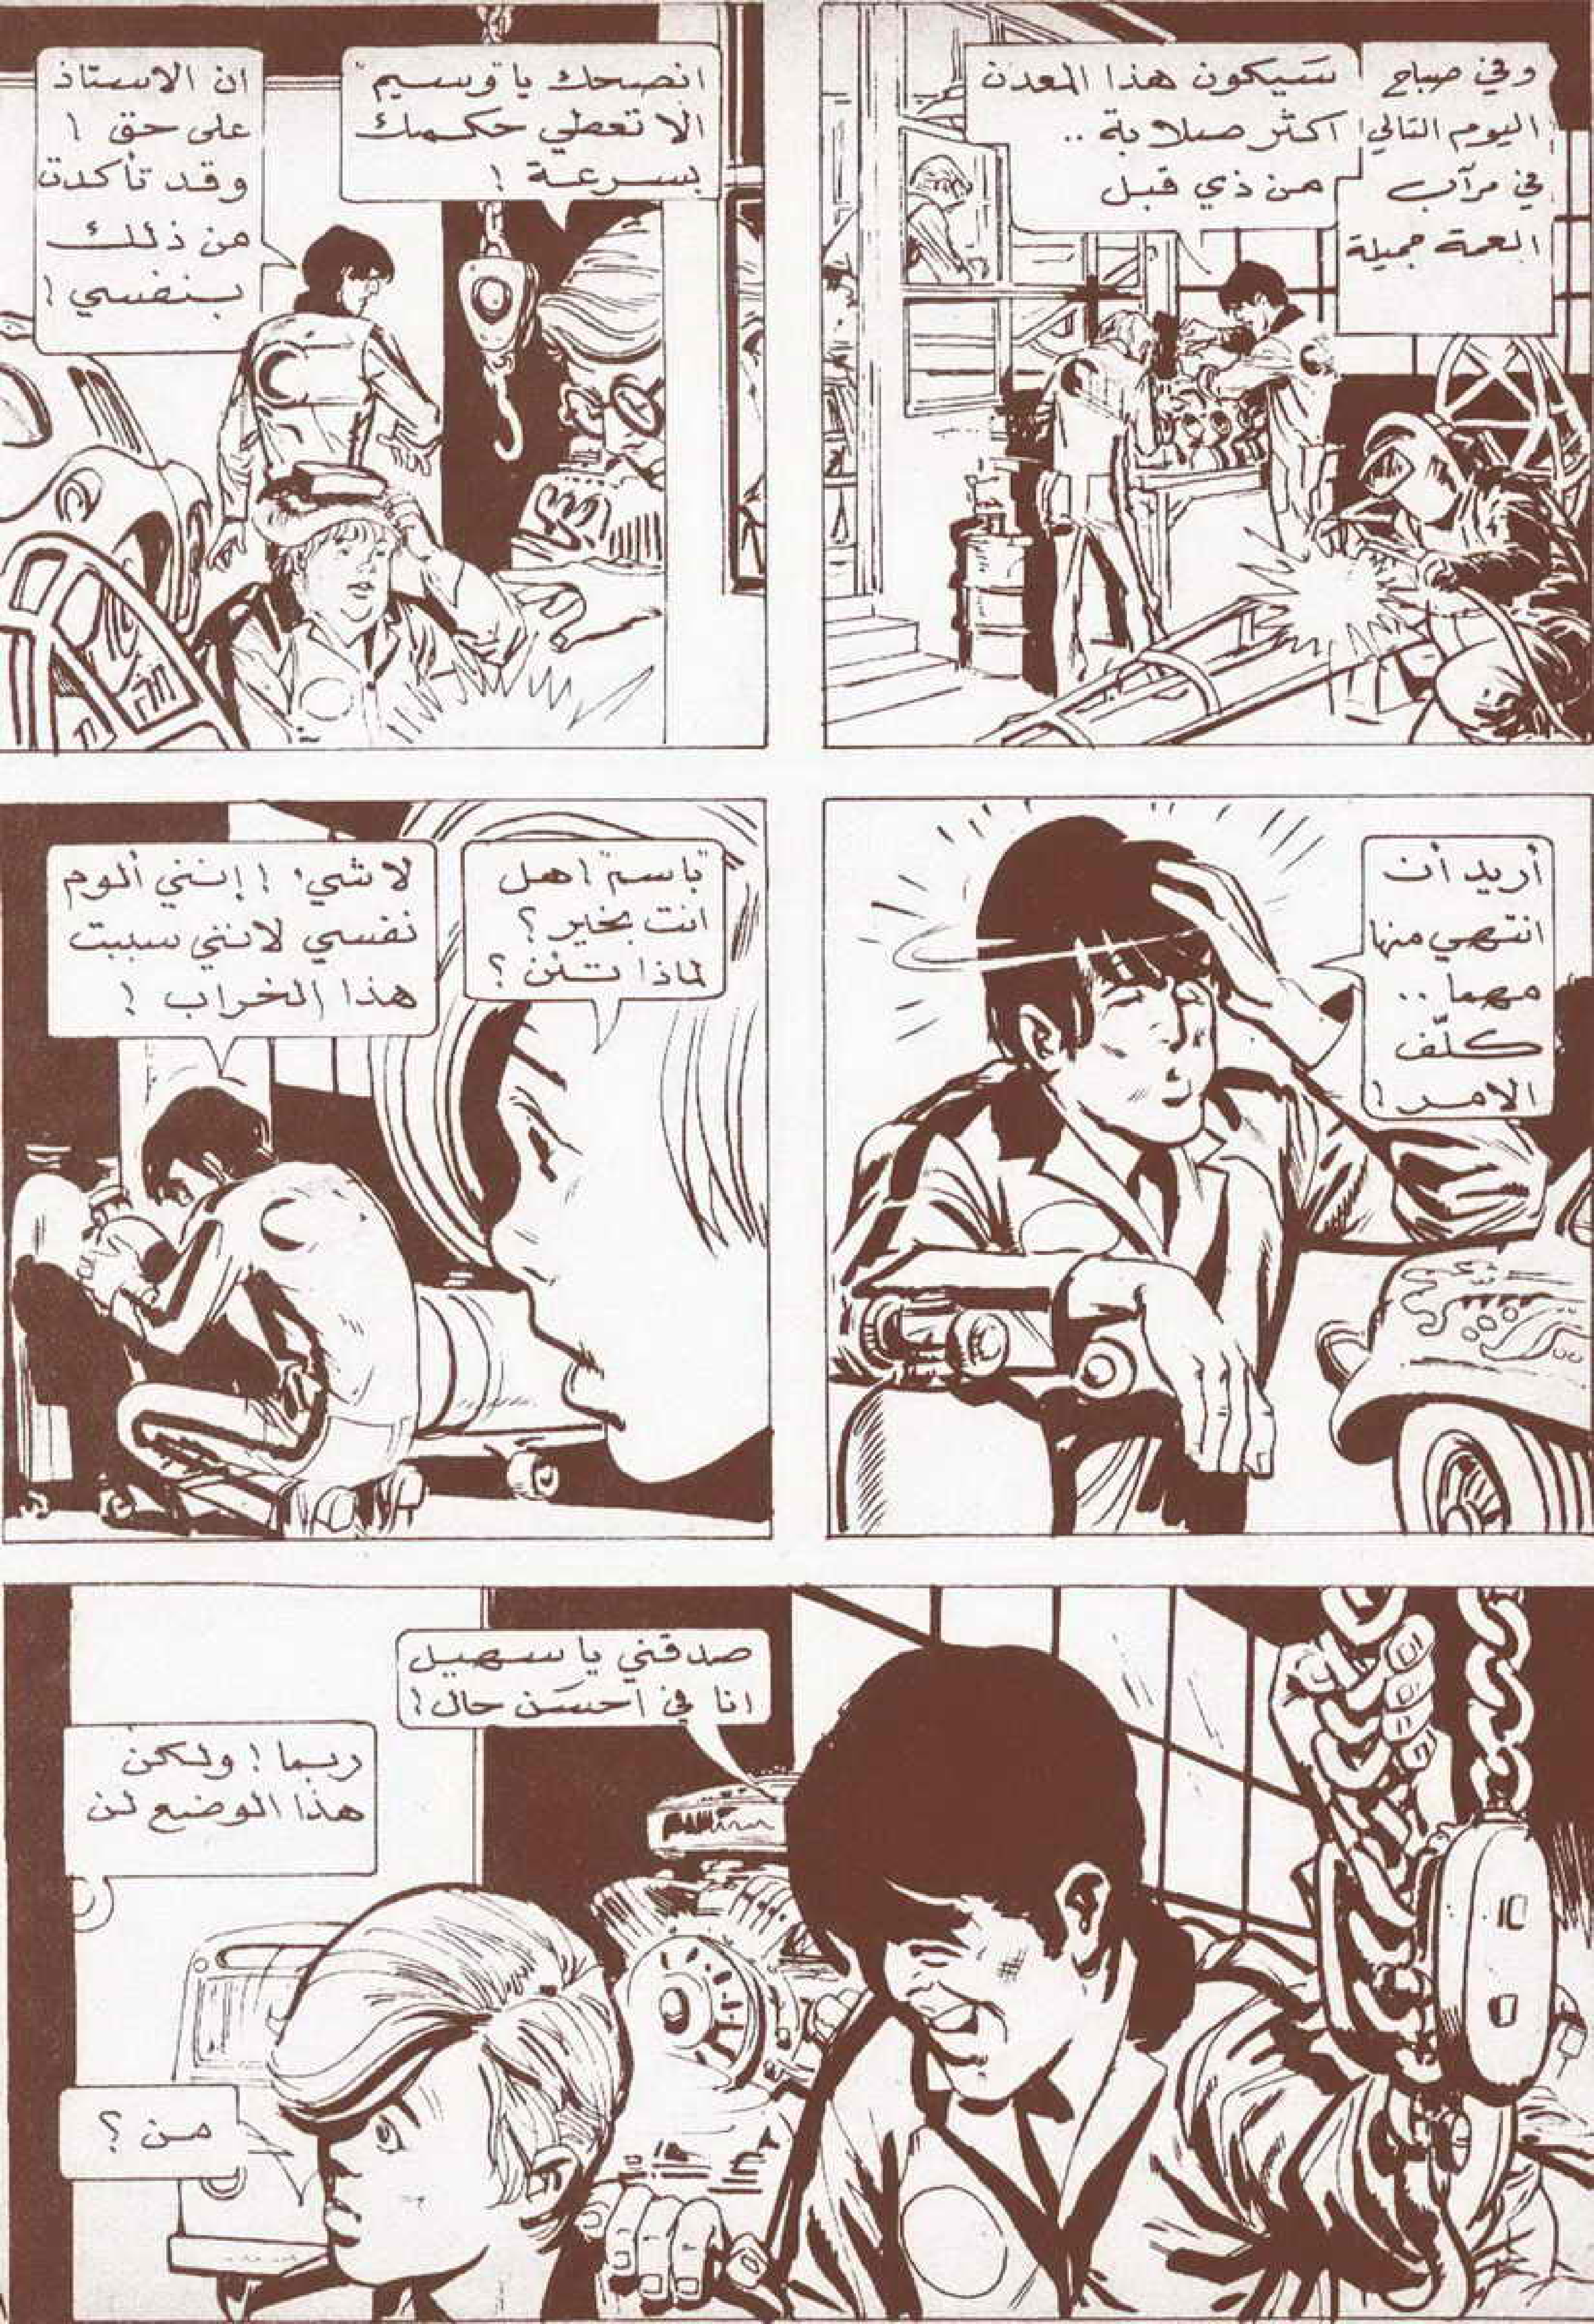 وفي صباح
اليوم التالي
في مرآب
العمة جميلة
سَيكون هذا المعدن
اكثر صلابة ..
من ذي قبل
انصحك يا "وسيم"
الا تعطي حكمك
بسرعة !
ان الاستاذ
على حق !
وقد تأكدت
من ذلك
بنفسي !
أريد أن
انتهي منها
مهما ..
كلّف
الامر !
"باسم" ! هل
انت بخير ؟
لماذا تئن ؟
لا شيء ! إنني ألوم
نفسي لانني سببت
هذا الخراب !
صدقني يا سهيل
انا في احسَن حال !
ربما ! ولكن
هذا الوضع لن
من ؟